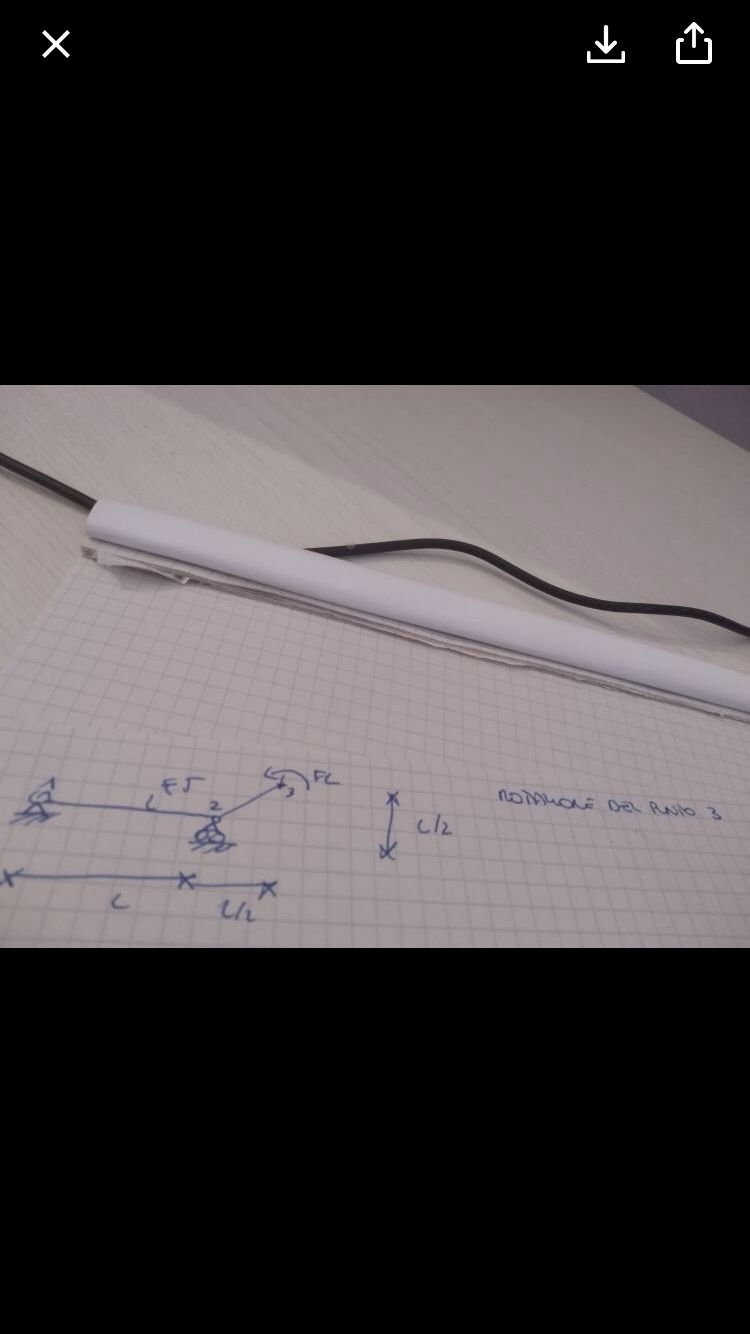 1
EJ
2
3
FL
L/2
ROTAZIONE DEL PUNTO 3
L
L/2